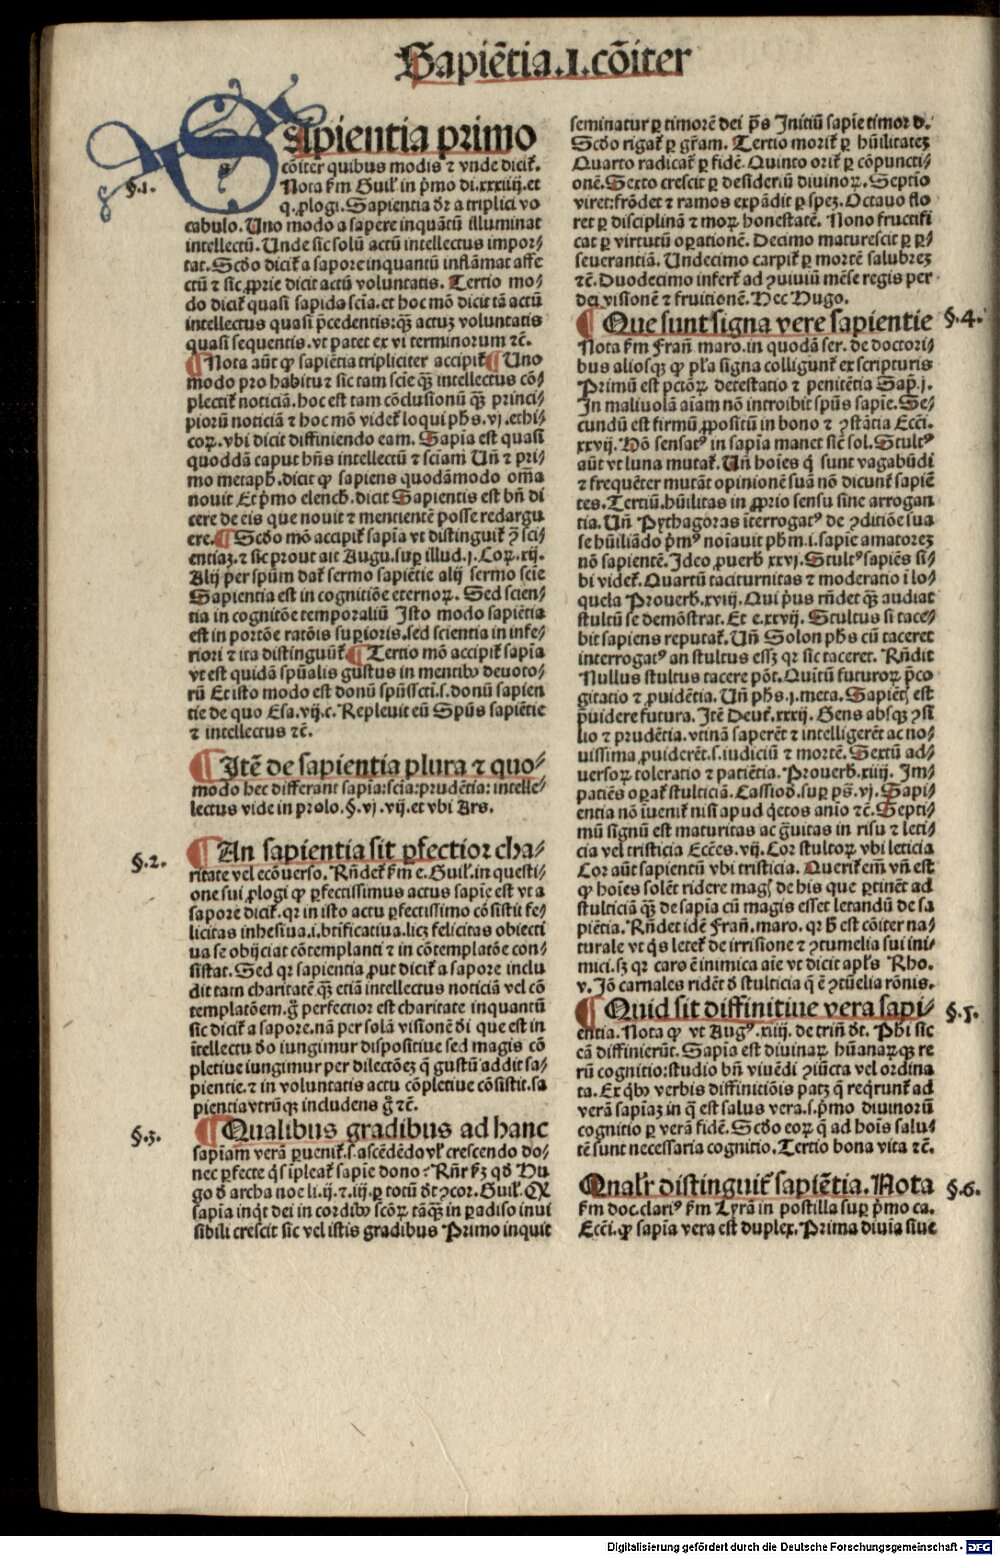 Sapiẽtia.1.cõiter
Sapientia primo
§.1.
cõiter quibus modis ⁊ vnde dicit̃.
Nota ẜm Guil̃ in p̃mo di.xxxiiij.et
q.ꝓlogi.Sapientia dr̃ a triplici vo
cabulo. Uno modo a sapere inquãtũ illuminat
intellectũ. Unde sic solũ actũ intellectus impor⸗
tat. Scd̃o dicit̃ a sapore inquantũ inflãmat affe
ctũ ⁊ sic ꝓprie dicit actũ voluntatis. Tertio mo⸗
do dicit̃ quasi sapida scĩa. et hoc mõ dicit tã actũ
intellectus quasi p̃cedentis: qꝫ̃ actuꝫ voluntatis
quasi sequentis. vt patet ex vi terminorum ⁊c̃.
¶ Nota aũt ꝙ sapiẽtia tripliciter accipit̃ ¶ Uno
modo pro habitu ⁊ sic tam scie qꝫ̃ intellectus cõ⸗
plectit̃ noticiã. hoc est tam cõclusionũ qꝫ̃ princi⸗
piorũ noticiã ⁊ hoc mõ videt̃ loqui ph̃s .vj. ethi⸗
coꝝ. vbi dicit diffiniendo eam. Sapĩa est quasi
quoddã caput hñs intellectũ ⁊ sciam̃ Uñ ⁊ pri⸗
mo metaph̃. dicit ꝙ sapiens quodãmodo om̃a
nouit Et p̃mo elench̃. dicit Sapientis est bñ di
cere de eis que nouit ⁊ mentientẽ posse redargu
ere. ¶ Scd̃o mõ accipit̃ sapĩa vt distinguit̃ ꝯ̃ sci⸗
entiaꝫ. ⁊ sic prout ait Augu. suꝑ illud .j. Coꝝ. xij.
Alij per spũm dat̃ sermo sapiẽtie alij sermo scie
Sapientia est in cognitiõe eternoꝝ. Sed scien⸗
tia in cognitõe temporaliũ Isto modo sapiẽtia
est in portõe ratõis suꝑioris. sed scientia in infe⸗
riori ⁊ ita distinguũt̃ ¶ Tertio mõ accipit̃ sapĩa
vt est quidã spũalis gustus in mentibꝰ deuoto⸗
rũ Et isto modo est donũ spũsscti .s. donũ sapien
tie de quo Esa .vij. c. Repleuit eũ Spũs sapiẽtie
⁊ intellectus ⁊c̃.
¶ Itẽ de sapientia plura ⁊ quo⸗
modo hec differant sapĩa: scĩa: prudẽtia: intelle⸗
lectus vide in prolo. §. vj .vij. et vbi Ars.
§.2.
¶ An sapientia sit ꝑfectior cha⸗
ritate vel ecõuerso. Rñdet̃ ẜm e. Guil̃. in questi⸗
one sui ꝓlogi ꝙ ꝑfectissimus actus sapĩe est vt a
sapore dicit̃. qr in isto actu ꝑfectissimo cõsistit fe⸗
licitas inhesiua .i. btĩficatiua. licꝫ felicitas obiecti
ua se obijciat cõtemplanti ⁊ in cõtemplatõe con⸗
sistat. Sed qr sapientia ꝓut dicit̃ a sapore inclu
dit tam charitatẽ qꝫ̃ etiã intellectus noticiã vel cõ
templatõem. g̃ perfectior est charitate inquantũ
sic dicit̃ a sapore. nã per solã visionẽ dei que est in
ĩtellectu deo iungimur dispositiue sed magis cõ
pletiue iungimur per dilectõeꝫ q̃ gustũ addit sa⸗
pientie. ⁊ in voluntatis actu cõpletiue cõsistit. sa
pientia vtrũqꝫ includens g̃ ⁊c̃.
§.3.
¶ Qualibus gradibus ad hanc
sapiam verã ꝑuenit̃ .s. ascẽdẽdo vl̃ crescendo do⸗
nec ꝑfecte q̃s ĩpleat̃ sapĩe dono ⸗ Rñr ẜꝫ qd̃ Hu
go d̃ archa noe li .ij. ⁊ .iij. ꝑ totũ dr̃t ꝯcor. Guil̃. Ql̃
sapĩa inq̃t dei in cordibꝰ scõꝝ tãqꝫ̃ in ꝑadiso inui
sibili crescit sic vel istis gradibus Primo inquit
seminatur ꝑ timorẽ dei p̃s Initiũ sapĩe timor d̃.
Scd̃o rigat̃ ꝑ gr̃am. Tertio morit̃ ꝑ hũilitateꝫ
Quarto radicat̃ ꝑ fidẽ. Quinto orit̃ ꝑ cõpuncti⸗
onẽ. Sexto crescit ꝑ desideriũ diuinoꝝ. Septio
viret: frõdet ⁊ ramos expãdit ꝑ speꝫ. Octauo flo
ret ꝑ disciplinã ⁊ moꝝ honestatẽ. Nono fructifi
cat ꝑ virtutũ oꝑationẽ. Decimo maturescit ꝑ ꝑ⸗
seuerantiã. Undecimo carpit̃ ꝑ mortẽ salubreꝫ
⁊c̃. Duodecimo infert̃ ad ꝯuiuiũ mẽse regis per
dei visionẽ ⁊ fruitionẽ. Hec Hugo.
¶ Que sunt signa vere sapientie §.4.
Nota ẜm Frañ. maro. in quodã ser. de doctori⸗
bus aliosqꝫ ꝙ pl̃a signa colligunt̃ ex scripturis
Primũ est pctõꝝ detestatio ⁊ penitẽtia Sap̃. j.
In maliuolã aĩam nõ introibit spũs sapĩe. Se⸗
cundũ est firmũ ꝓpositũ in bono ⁊ ꝯstãtia Ecc̃i.
xxvij. Hõ sensatꝰ in sapĩa manet sic̃ sol. Stultꝰ
aũt vt luna mutat̃. Uñ hoĩes q̃ sunt vagabũdi
⁊ frequẽter mutãt opinionẽ suã nõ dicunt̃ sapiẽ
tes. Tertiũ. hũilitas in ꝓprio sensu sine arrogan
tia. Uñ Pythagoras ĩterrogatꝰ de ꝯditiõe sua
se hũiliãdo p̃mꝰ noĩauit ph̃m .i. sapĩe amatoreꝫ
nõ sapientẽ. Ideo ꝓuerb̃ xxvj. Stultꝰ sapiẽs si⸗
bi videt̃. Quartũ taciturnitas ⁊ moderatio ĩ lo⸗
quela Prouerb̃. xviij. Qui p̃us rñdet qꝫ̃ audiat
stultũ se demõstrat. Et e. xxvij. Stultus si tace⸗
bit sapiens reputat̃. Uñ Solon ph̃s cũ taceret
interrogatꝰ an stultus essꝫ qr sic taceret. Rñdit
Nullus stultus tacere põt. Quĩtũ futuroꝝ p̃co
gitatio ⁊ ꝓuidẽtia. Uñ ph̃s .j. meta. Sapiẽtꝭ est
p̃uidere futura. Itẽ Deut̃. xxxij. Gens absqꝫ ꝯsi
lio ⁊ prudẽtia. vtinã saperẽt ⁊ intelligerẽt ac no⸗
uissima ꝓuiderẽt .s. iudiciũ ⁊ mortẽ. Sextũ ad⸗
uersoꝝ toleratio ⁊ patiẽtia. Prouerb̃. xiiij. Im⸗
patiẽs oꝑat̃ stulticiã. Cassiod̃. suꝑ ps̃. vj. Sapi⸗
entia nõ ĩuenit̃ nisi apud q̃etos anio ⁊c̃. Septi⸗
mũ signũ est maturitas ac g̃uitas in risu ⁊ leti⸗
cia vel tristicia Ecc̃es. vij. Cor stultoꝝ vbi leticia
Cor aũt sapientũ vbi tristicia. Querit̃ em̃ vñ est
ꝙ hoĩes solẽt ridere magꝭ de his que ꝑtinẽt ad
stulticiã qꝫ̃ de sapĩa cũ magis esset letandũ de sa
piẽtia. Rñdet idẽ Frañ. maro. qr h̃ est cõiter na⸗
turale vt q̃s letet̃ de irrisione ⁊ ꝯtumelia sui ini⸗
mici. sꝫ qr caro ẽ inimica aĩe vt dicit apl̃s Rho.
v. Iõ carnales ridẽt d̃ stulticia q̃ ẽ ꝯtũelia rõnis.
¶ Quid sit diffinitiue vera sapi⸗ §.5.
entia. Nota ꝙ vt Augꝰ. xiiij. de triñ dt̃. Phi sic
eã diffinierũt. Sapĩa est diuinaꝝ hũanaꝝqꝫ re
rũ cognitio: studio bñ viuẽdi ꝯiũcta vel ordina
ta. Ex q̃bꝰ verbis diffinitiõis patꝫ q̃ req̃runt̃ ad
verã sapĩaꝫ in q̃ est salus vera .s. p̃mo diuinorũ
cognitio ꝑ verã fidẽ. Scd̃o eoꝝ q̃ ad hoĩs salu⸗
tẽ sunt necessaria cognitio. Tertio bona vita ⁊c̃.
Qualr̃ distinguit̃ sapiẽtia. Nota §.6.
ẜm doc. clariꝰ ẜm Lyrã in postilla suꝑ p̃mo ca.
Ecc̃i. ꝙ sapĩa vera est duplex. Prima diuĩa siue
Digitalisierung gefördert durch die Deutsche Forschungsgemeinschaft - DFG